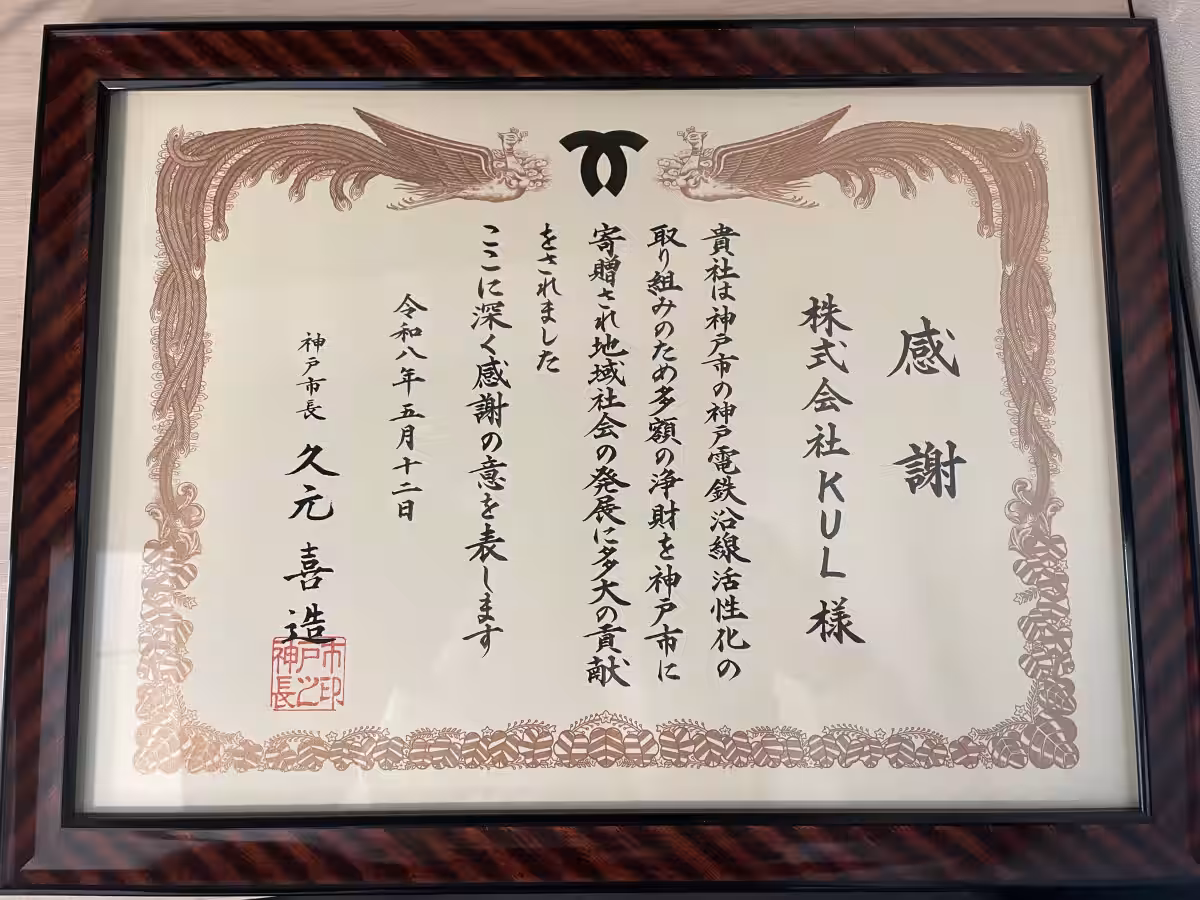 感謝
株式会社KUL様
貴社は神戸市の神戸電鉄沿線活性化の
取り組みのため多額の浄財を神戸市に
寄贈され地域社会の発展に多大の貢献
をされました
ここに深く感謝の意を表します
令和八年五月十二日
神戸市長 久元 喜造
神戸市長之印